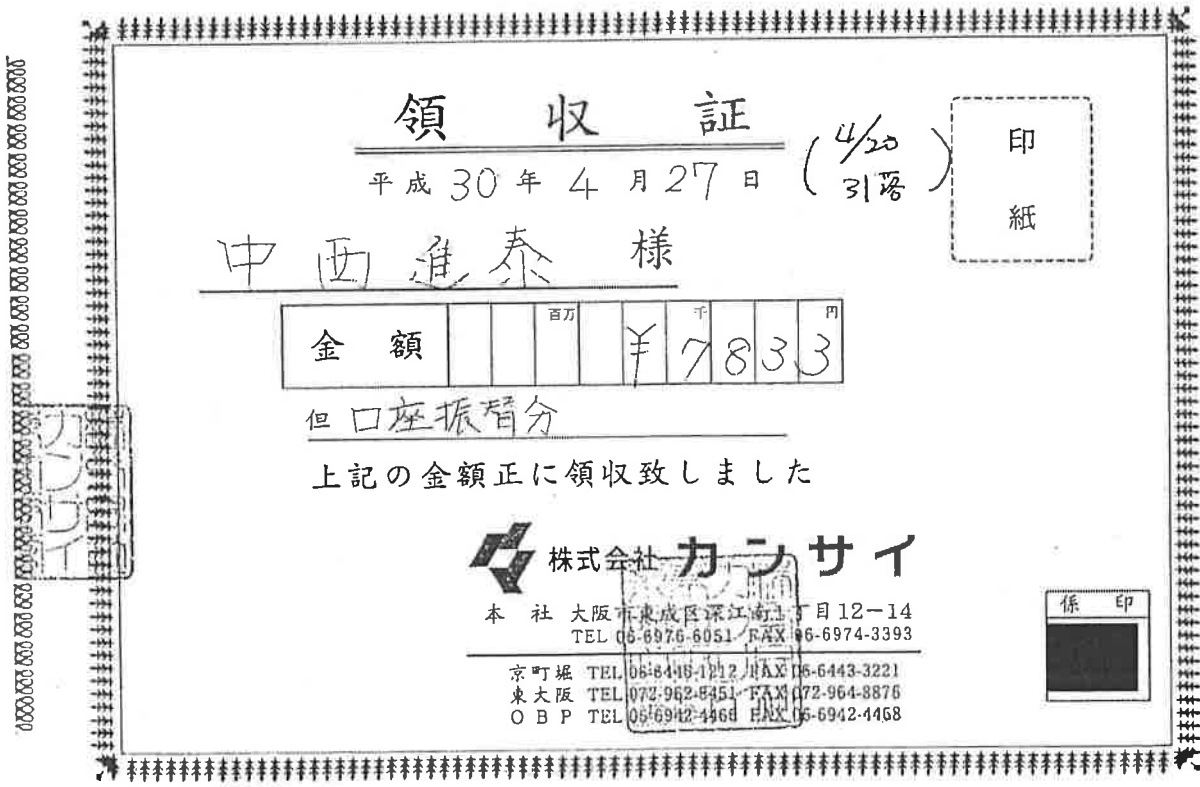 領収証
平成30年4月27日
(4/20
引落)
印
紙
中西進泰 様
金額 百万 千 円
¥7833
但 口座振替分
上記の金額正に領収致しました
株式会社 カンサイ
本社 大阪市東成区深江南1丁目12-14
TEL 06-6976-6051 FAX 06-6974-3393
京町堀 TEL 06-6446-1212 FAX 06-6443-3221
東大阪 TEL 072-962-8451 FAX 072-964-8876
OBP TEL 06-6942-4468 FAX 06-6942-4468
係印